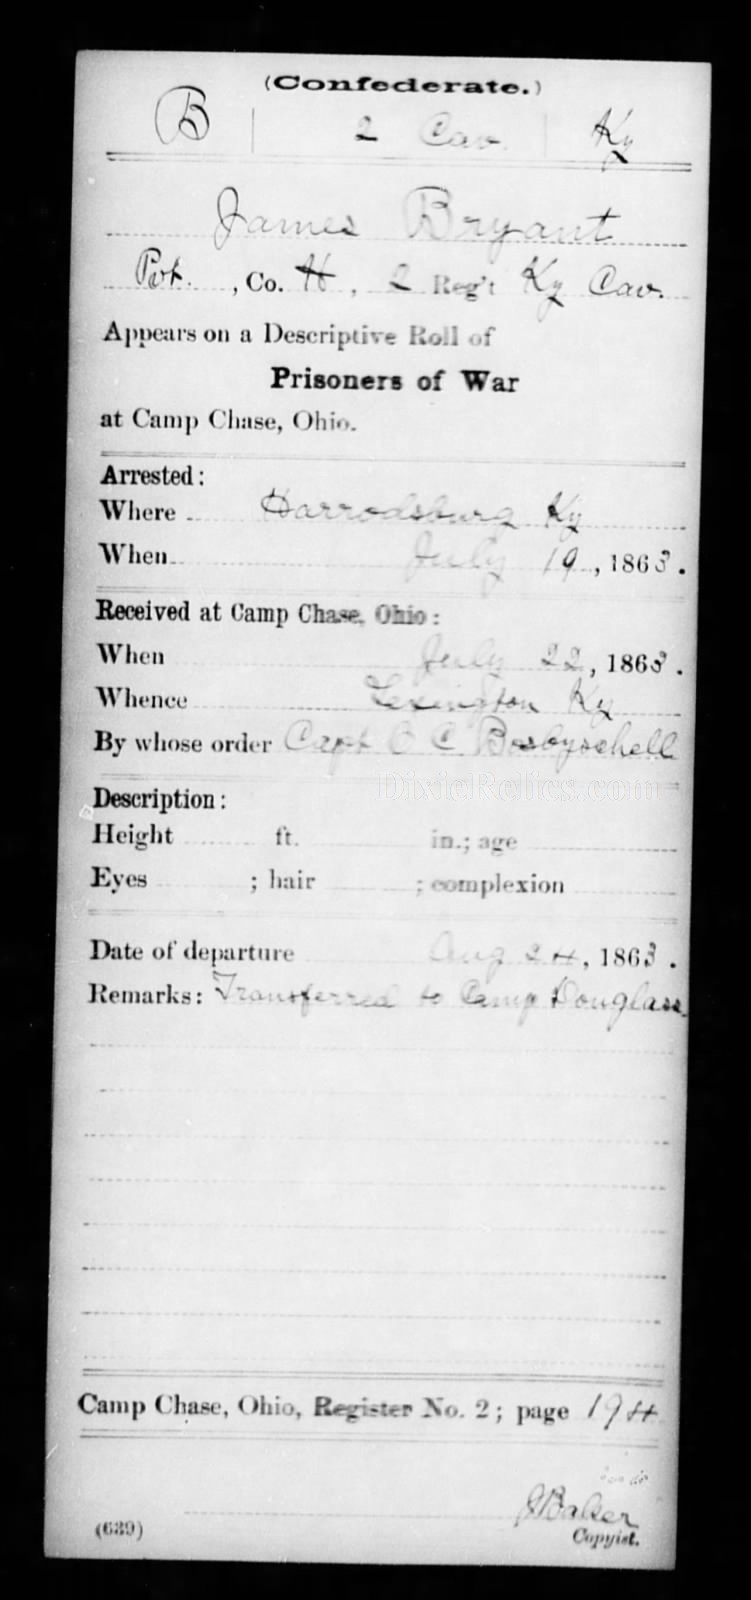 (Confederate.)
B | 2 Cav. | Ky
James Bryant
Pvt., Co. H, 2 Reg't Ky Cav.
Appears on a Descriptive Roll of
Prisoners of War
at Camp Chase, Ohio.
Arrested:
Where Harrodsburg Ky
When July 19, 1863.
Received at Camp Chase, Ohio:
When July 22, 1863.
Whence Lexington Ky
By whose order Capt O C Bosbyschell
DixieRelics.com
Description:
Height ft. in.; age
Eyes ; hair ; complexion
Date of departure Aug 24, 1863.
Remarks: Transferred to Camp Douglass.
Camp Chase, Ohio, Register No. 2; page 194
J Baker
(639) Copyist.